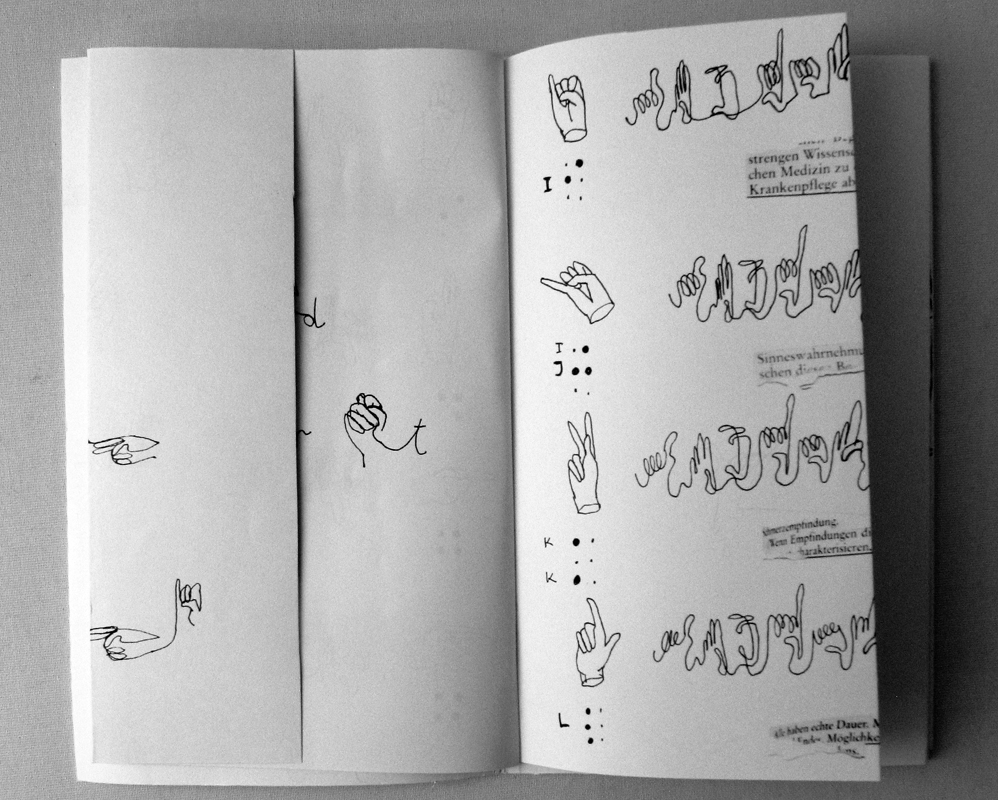 d
t
I
strengen Wissens
chen Medizin zu
Krankenpflege ab
I
J
Sinneswahrnehmu
schen dieser
K
K
Schmerzempfindung.
Wenn Empfindungen di
charakterisieren,
L
haben echte Dauer. M
Ende. Möglichke